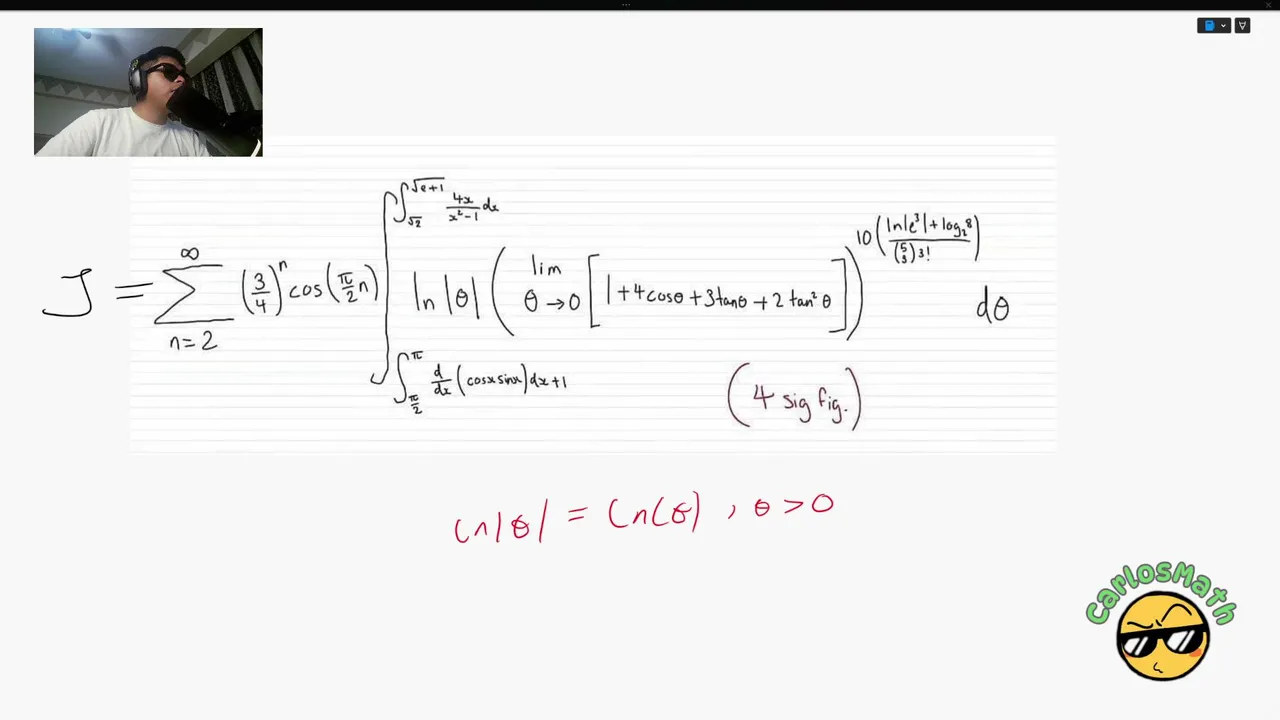 J = ∑_{n=2}^{∞} (3/4)^n cos(π/2 n) ∫_{∫_{π/2}^{π} d/dx (cosx sinx) dx + 1}^{∫_{√2}^{√e+1} 4x/(x²-1) dx} ln|θ| (lim_{θ→0} [1+4cosθ+3tanθ+2tan²θ])^{10((ln|e³|+log₂8)/((5 3)3!))} dθ
(4 sig fig.)
ln|θ| = ln(θ), θ>0
CarlosMath